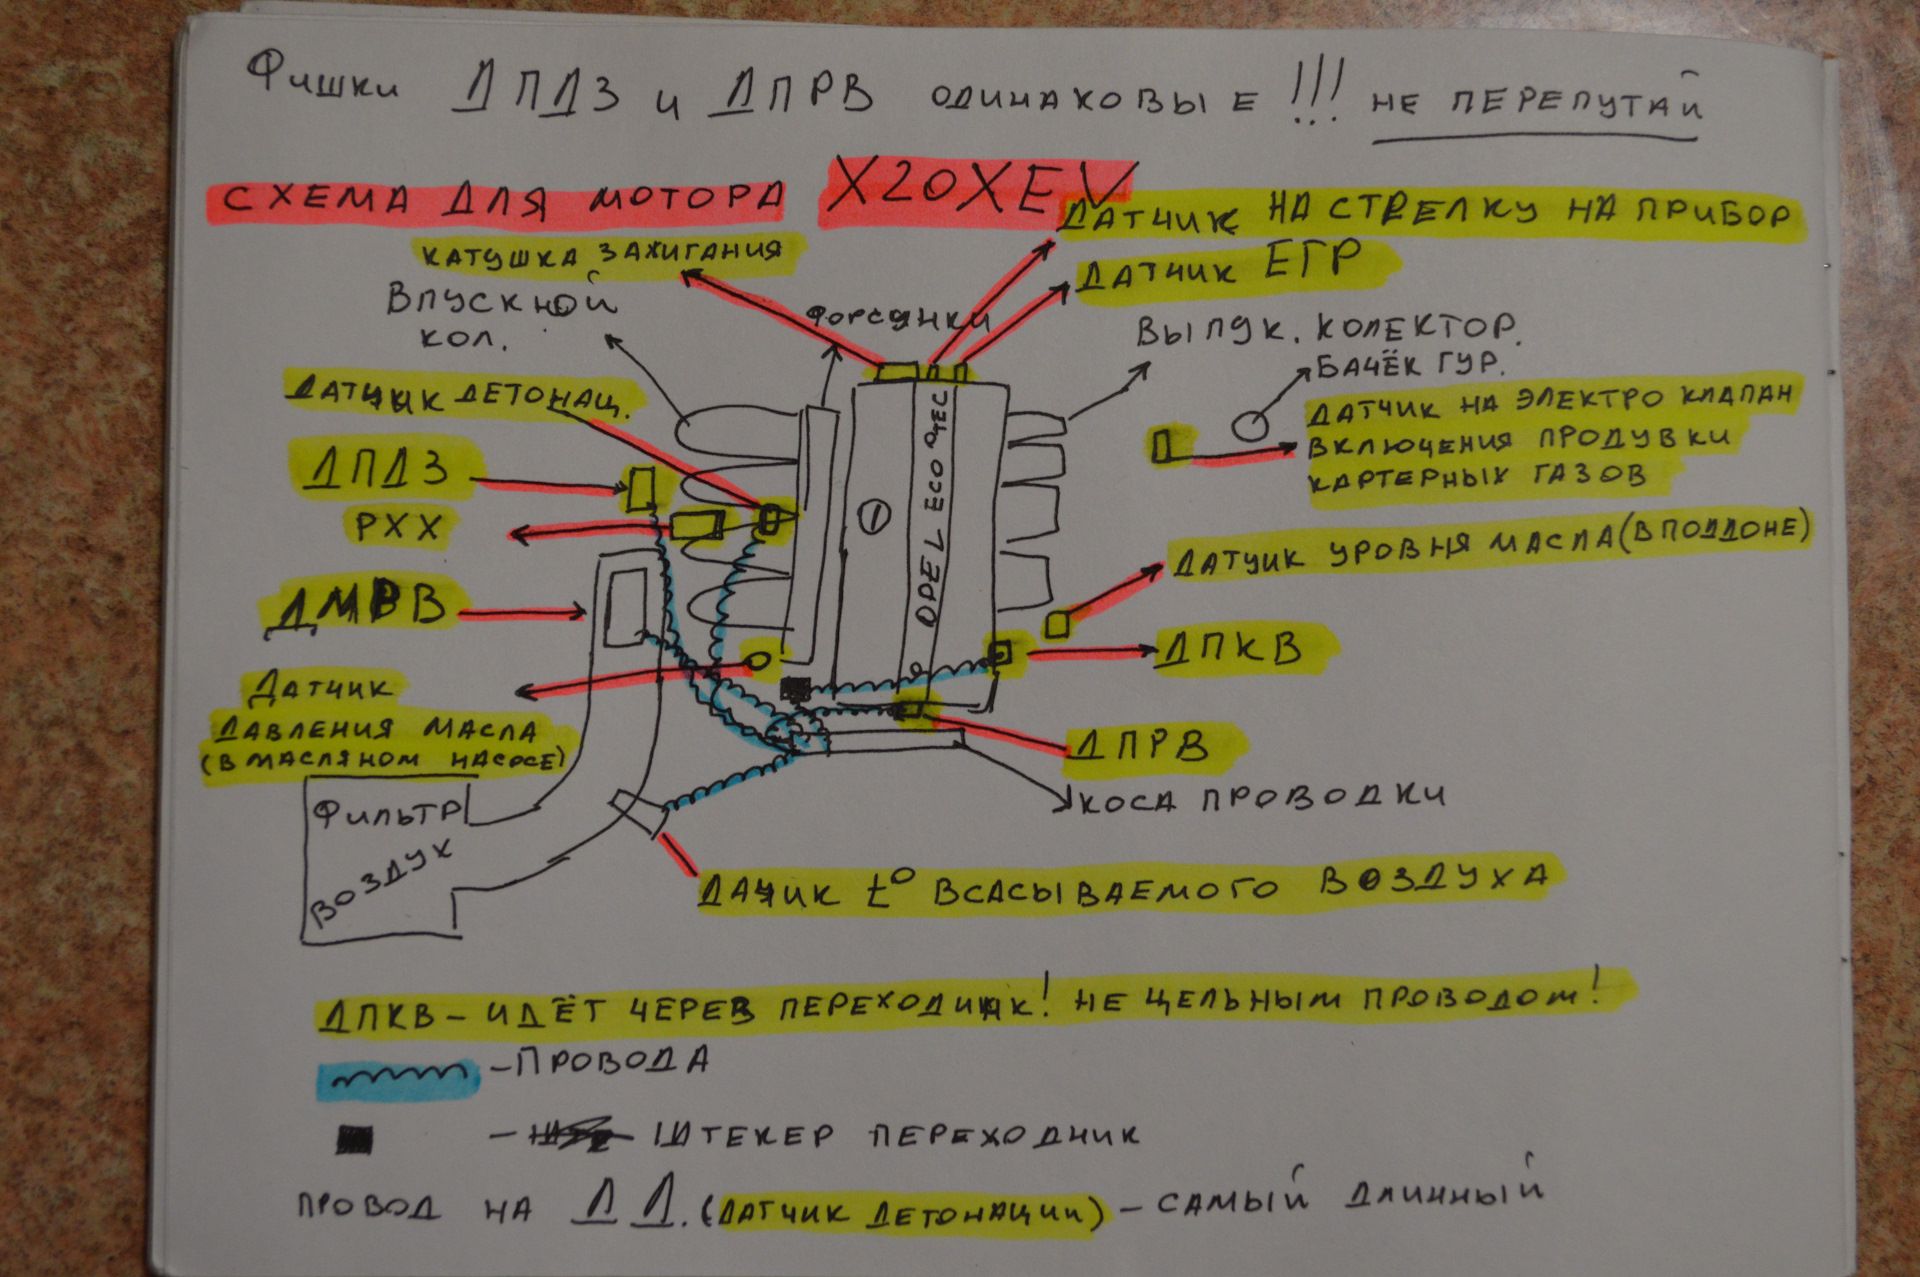 Фишки ДПДЗ и ДПРВ одинаковые!!! не перепутай
СХЕМА ДЛЯ МОТОРА X20XEV
ДАТЧИК НА СТРЕЛКУ НА ПРИБОР
КАТУШКА ЗАЖИГАНИЯ
ДАТЧИК ЕГР
ВПУСКНОЙ
КОЛ.
ФОРСУНКИ
ВЫПУК. КОЛЕКТОР.
БАЧЁК ГУР.
ДАТЧИК ДЕТОНАЦ.
ДАТЧИК НА ЭЛЕКТРО КЛАПАН
ВКЛЮЧЕНИЯ ПРОДУВКИ
КАРТЕРНЫХ ГАЗОВ
ДПДЗ
РХХ
OPEL ECOTEC
ДАТЧИК УРОВНЯ МАСЛА (В ПОДДОНЕ)
ДМРВ
ДПКВ
ДАТЧИК
ДАВЛЕНИЯ МАСЛА
(В МАСЛЯНОМ НАСОСЕ)
ДПРВ
КОСА ПРОВОДКИ
ФИЛЬТР
ВОЗДУХ
ДАЧИК t° ВСАСЫВАЕМОГО ВОЗДУХА
ДПКВ – ИДЁТ ЧЕРЕВ ПЕРЕХОДНИК! НЕ ЦЕЛЬНЫМ ПРОВОДОМ!
– ПРОВОДА
– ШТЕКЕР ПЕРЕХОДНИК
ПРОВОД НА Д Д. (ДАТЧИК ДЕТОНАЦИИ) – САМЫЙ ДЛИННЫЙ